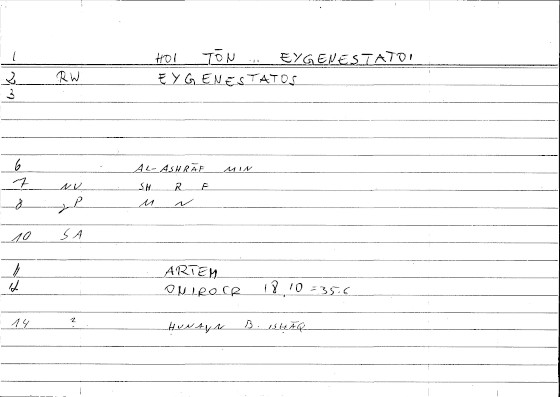 1 HOI TŌN ... EYGENESTATOI
2 RW EYGENESTATOS
3
6 AL-ASHRĀF MIN
7 NV SH R F
8 yP M N
10 SA
11 ARTEM
12 ONIROCR 18,10 = 35.6
14 ? HUNAYN B. ISHĀQ